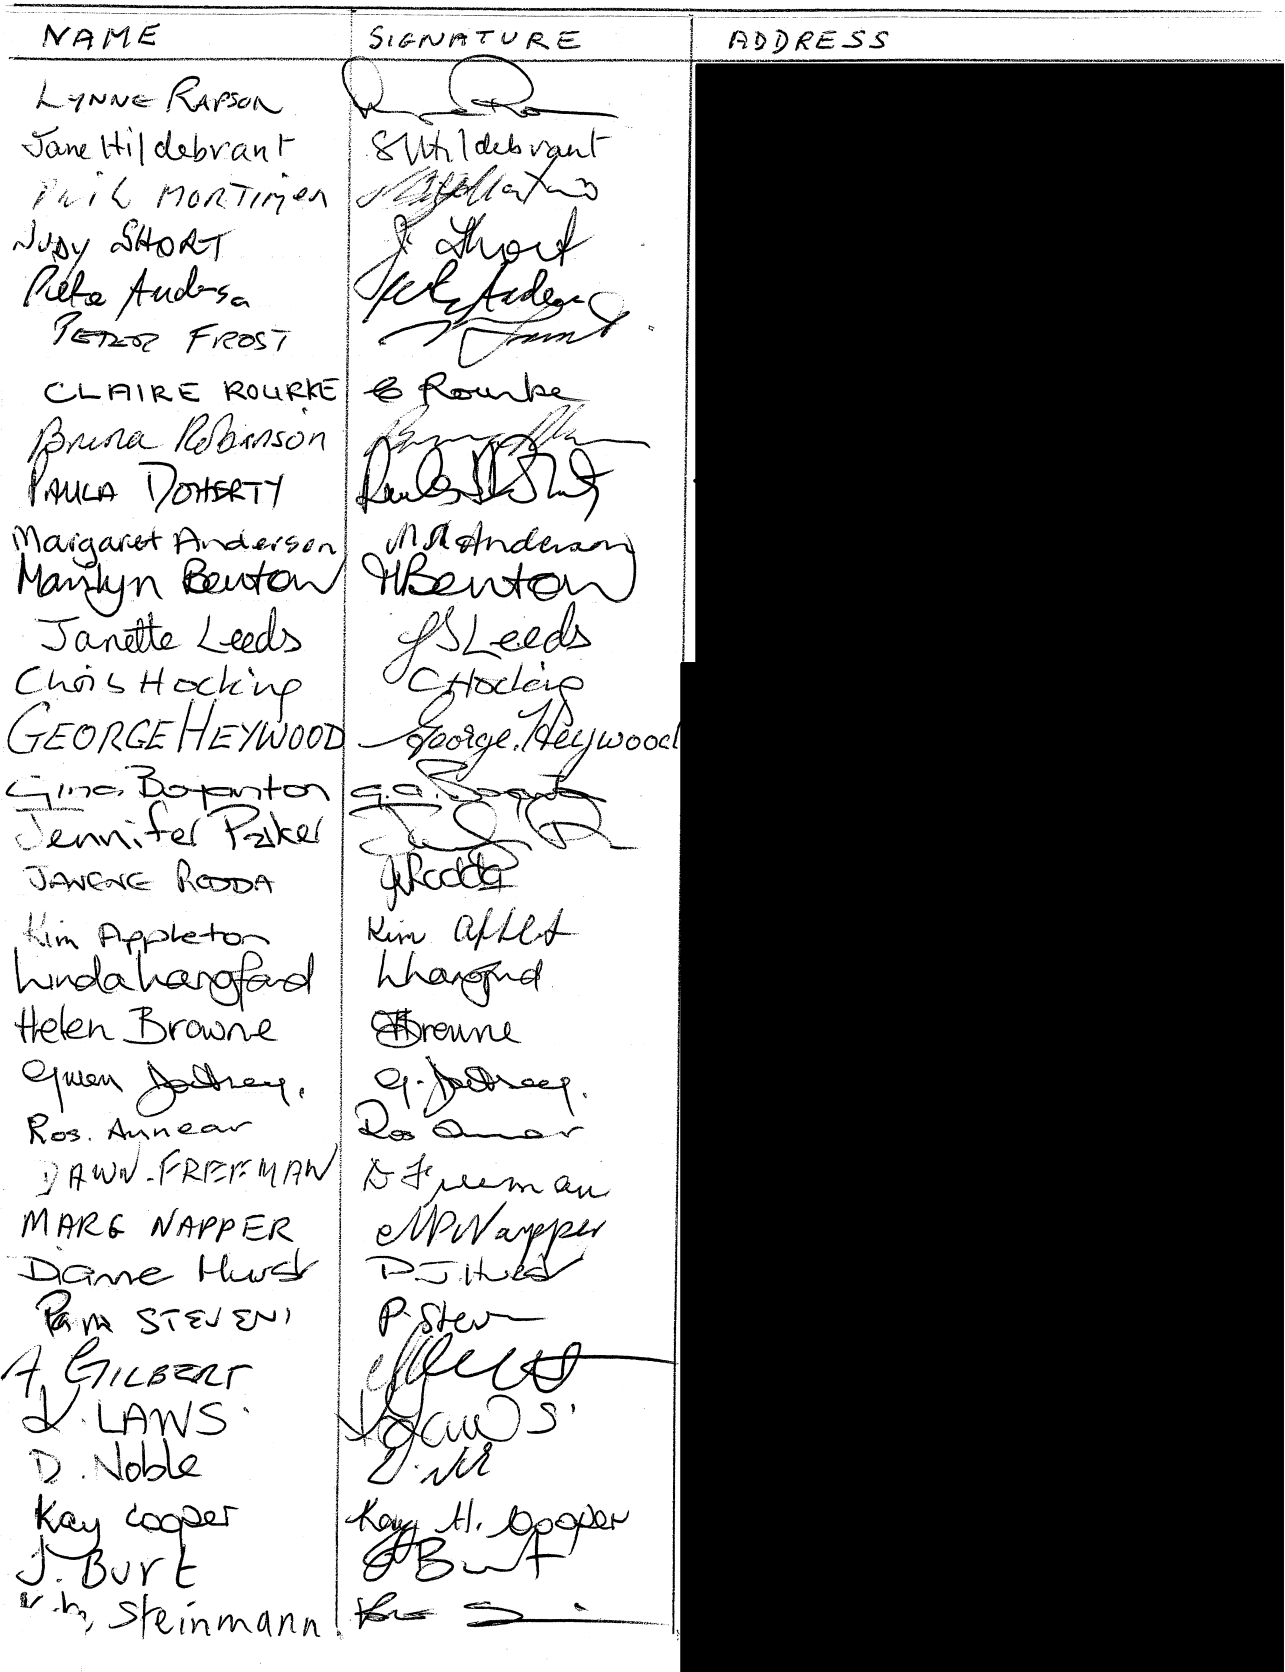 NAME SIGNATURE ADDRESS
LYNNE RAPSON
Jane Hildebrant SWHildebrant
MORTIMER
JUDY SHORT J Short
PETER FROST
CLAIRE ROURKE C Rourke
Bruna Robinson
PAULA DOHERTY
Margaret Anderson Anderson
Marilyn Benton MBenton
Janette Leeds JS Leeds
Chris Hocking CHocking
GEORGE HEYWOOD George. Heywood
Gina Boyanton G.A.
Jennifer Parker
JANENE RODDA JRodda
Kim Appleton Kim
Linda Langford
Helen Browne HBrowne
Gwen
Ros. Annear Ros
DAWN-FREEMAN D Freeman
MARG NAPPER MPNapper
Diane Hurst D J Hurst
Pam STEVENS
A GILBERT
L. LAWS.
D. Noble
Kay Cooper Kay H. Cooper
J. Burt J Burt
Steinmann